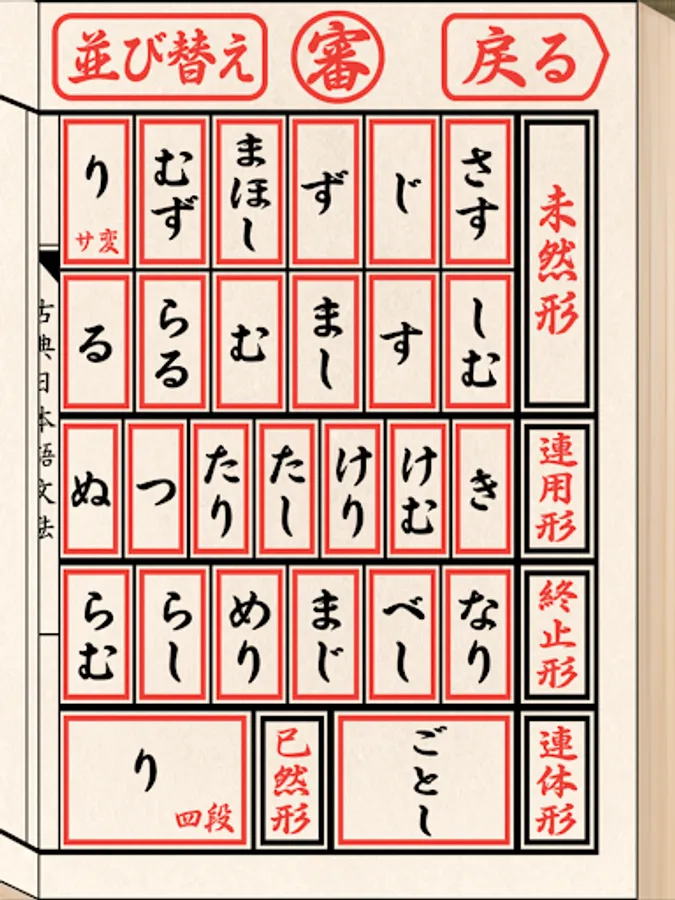 並び替え
審
戻る
未然形
さす
じ
ず
まほし
むず
り
サ変
しむ
す
まし
む
らる
る
連用形
き
けむ
けり
たし
たり
つ
ぬ
終止形
なり
べし
まじ
めり
らし
らむ
連体形
ごとし
已然形
り
四段
古典日本語文法